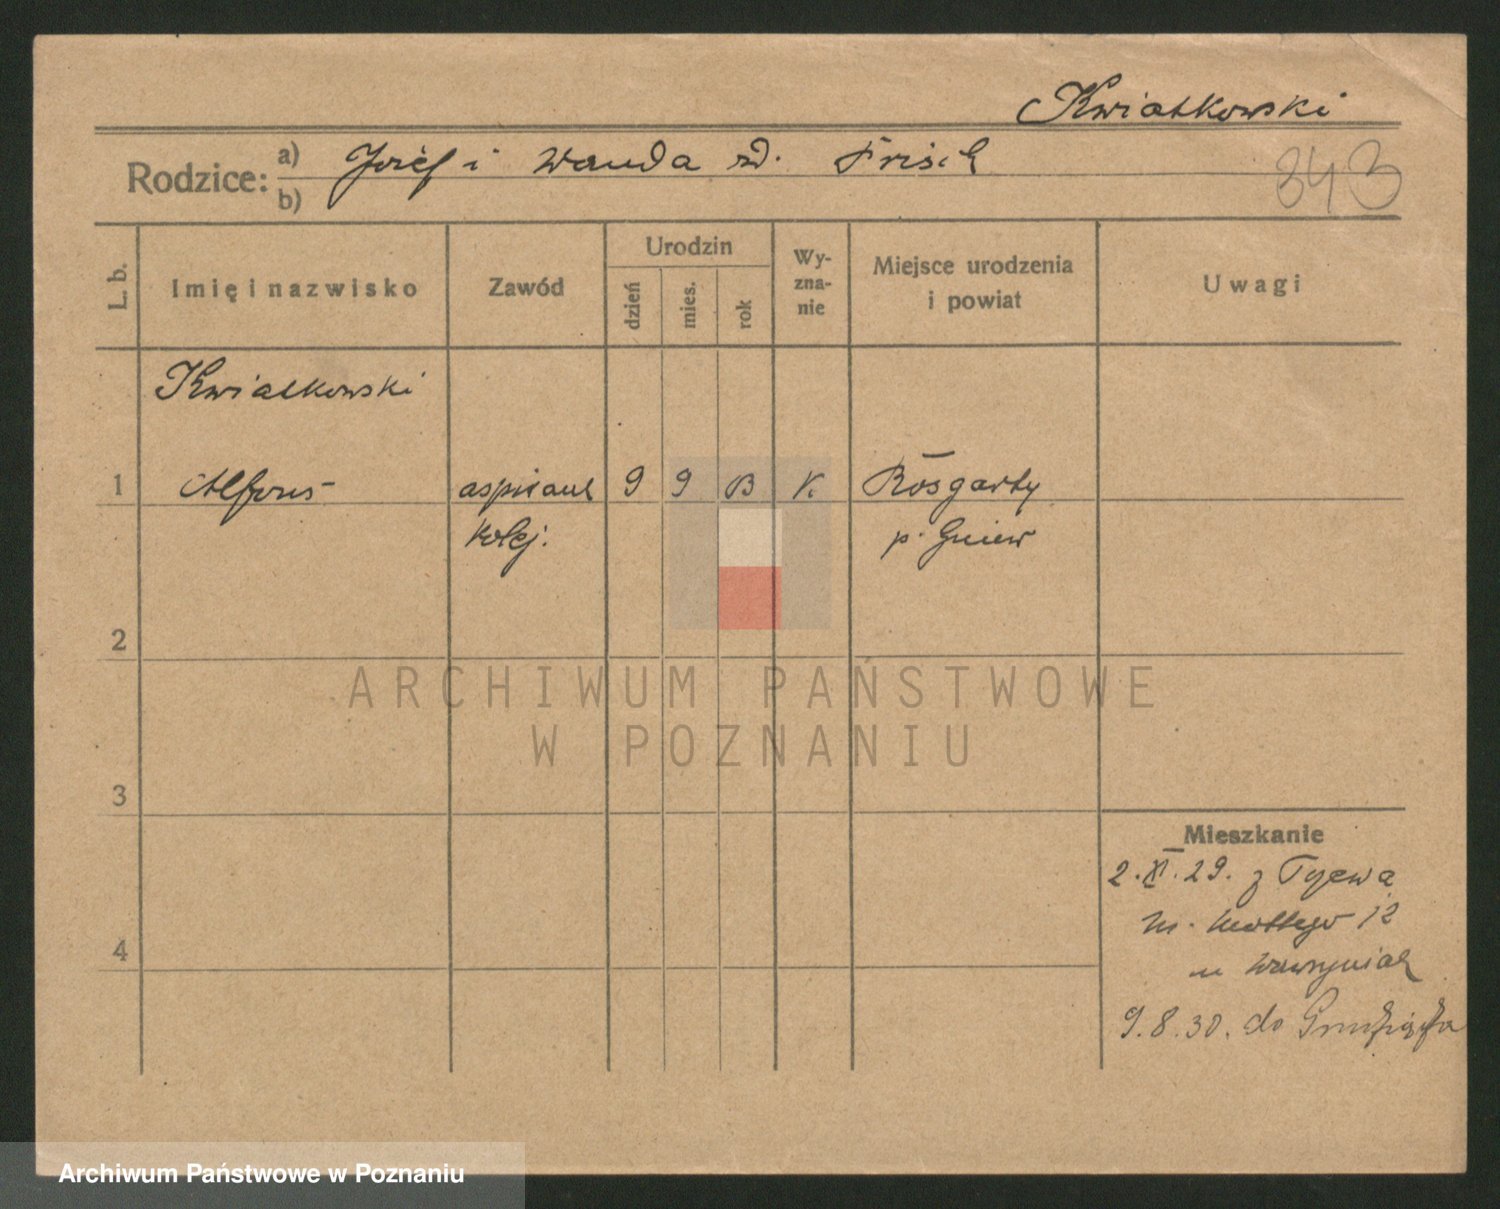 Kwiatkowski
Rodzice: a) Józef i Wanda rd. Frisch
b)
343
L. b.
Imię i nazwisko
Zawód
Urodzin
dzień
mies.
rok
Wy-
zna-
nie
Miejsce urodzenia
i powiat
Uwagi
Kwiatkowski
1 Alfons aspirant 9 9 B K Rosgarty
kolej. p. Gniew
2
3
4
Mieszkanie
2. XI. 29. z Tczewa
m. Mottego 12
u Wawrzyniak
9. 8. 30. do Grudziądza
ARCHIWUM PAŃSTWOWE
W POZNANIU
Archiwum Państwowe w Poznaniu